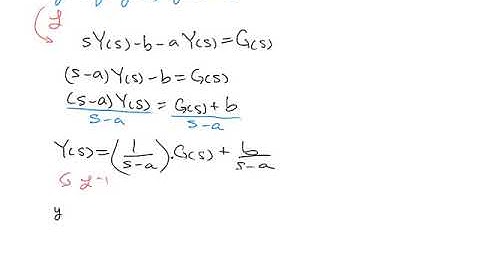 ℒ
sY(s)-b-aY(s)=G(s)
(s-a)Y(s)-b=G(s)
(s-a)Y(s)/s-a = G(s)+b/s-a
Y(s)=(1/s-a).G(s)+b/s-a
ℒ-1
y